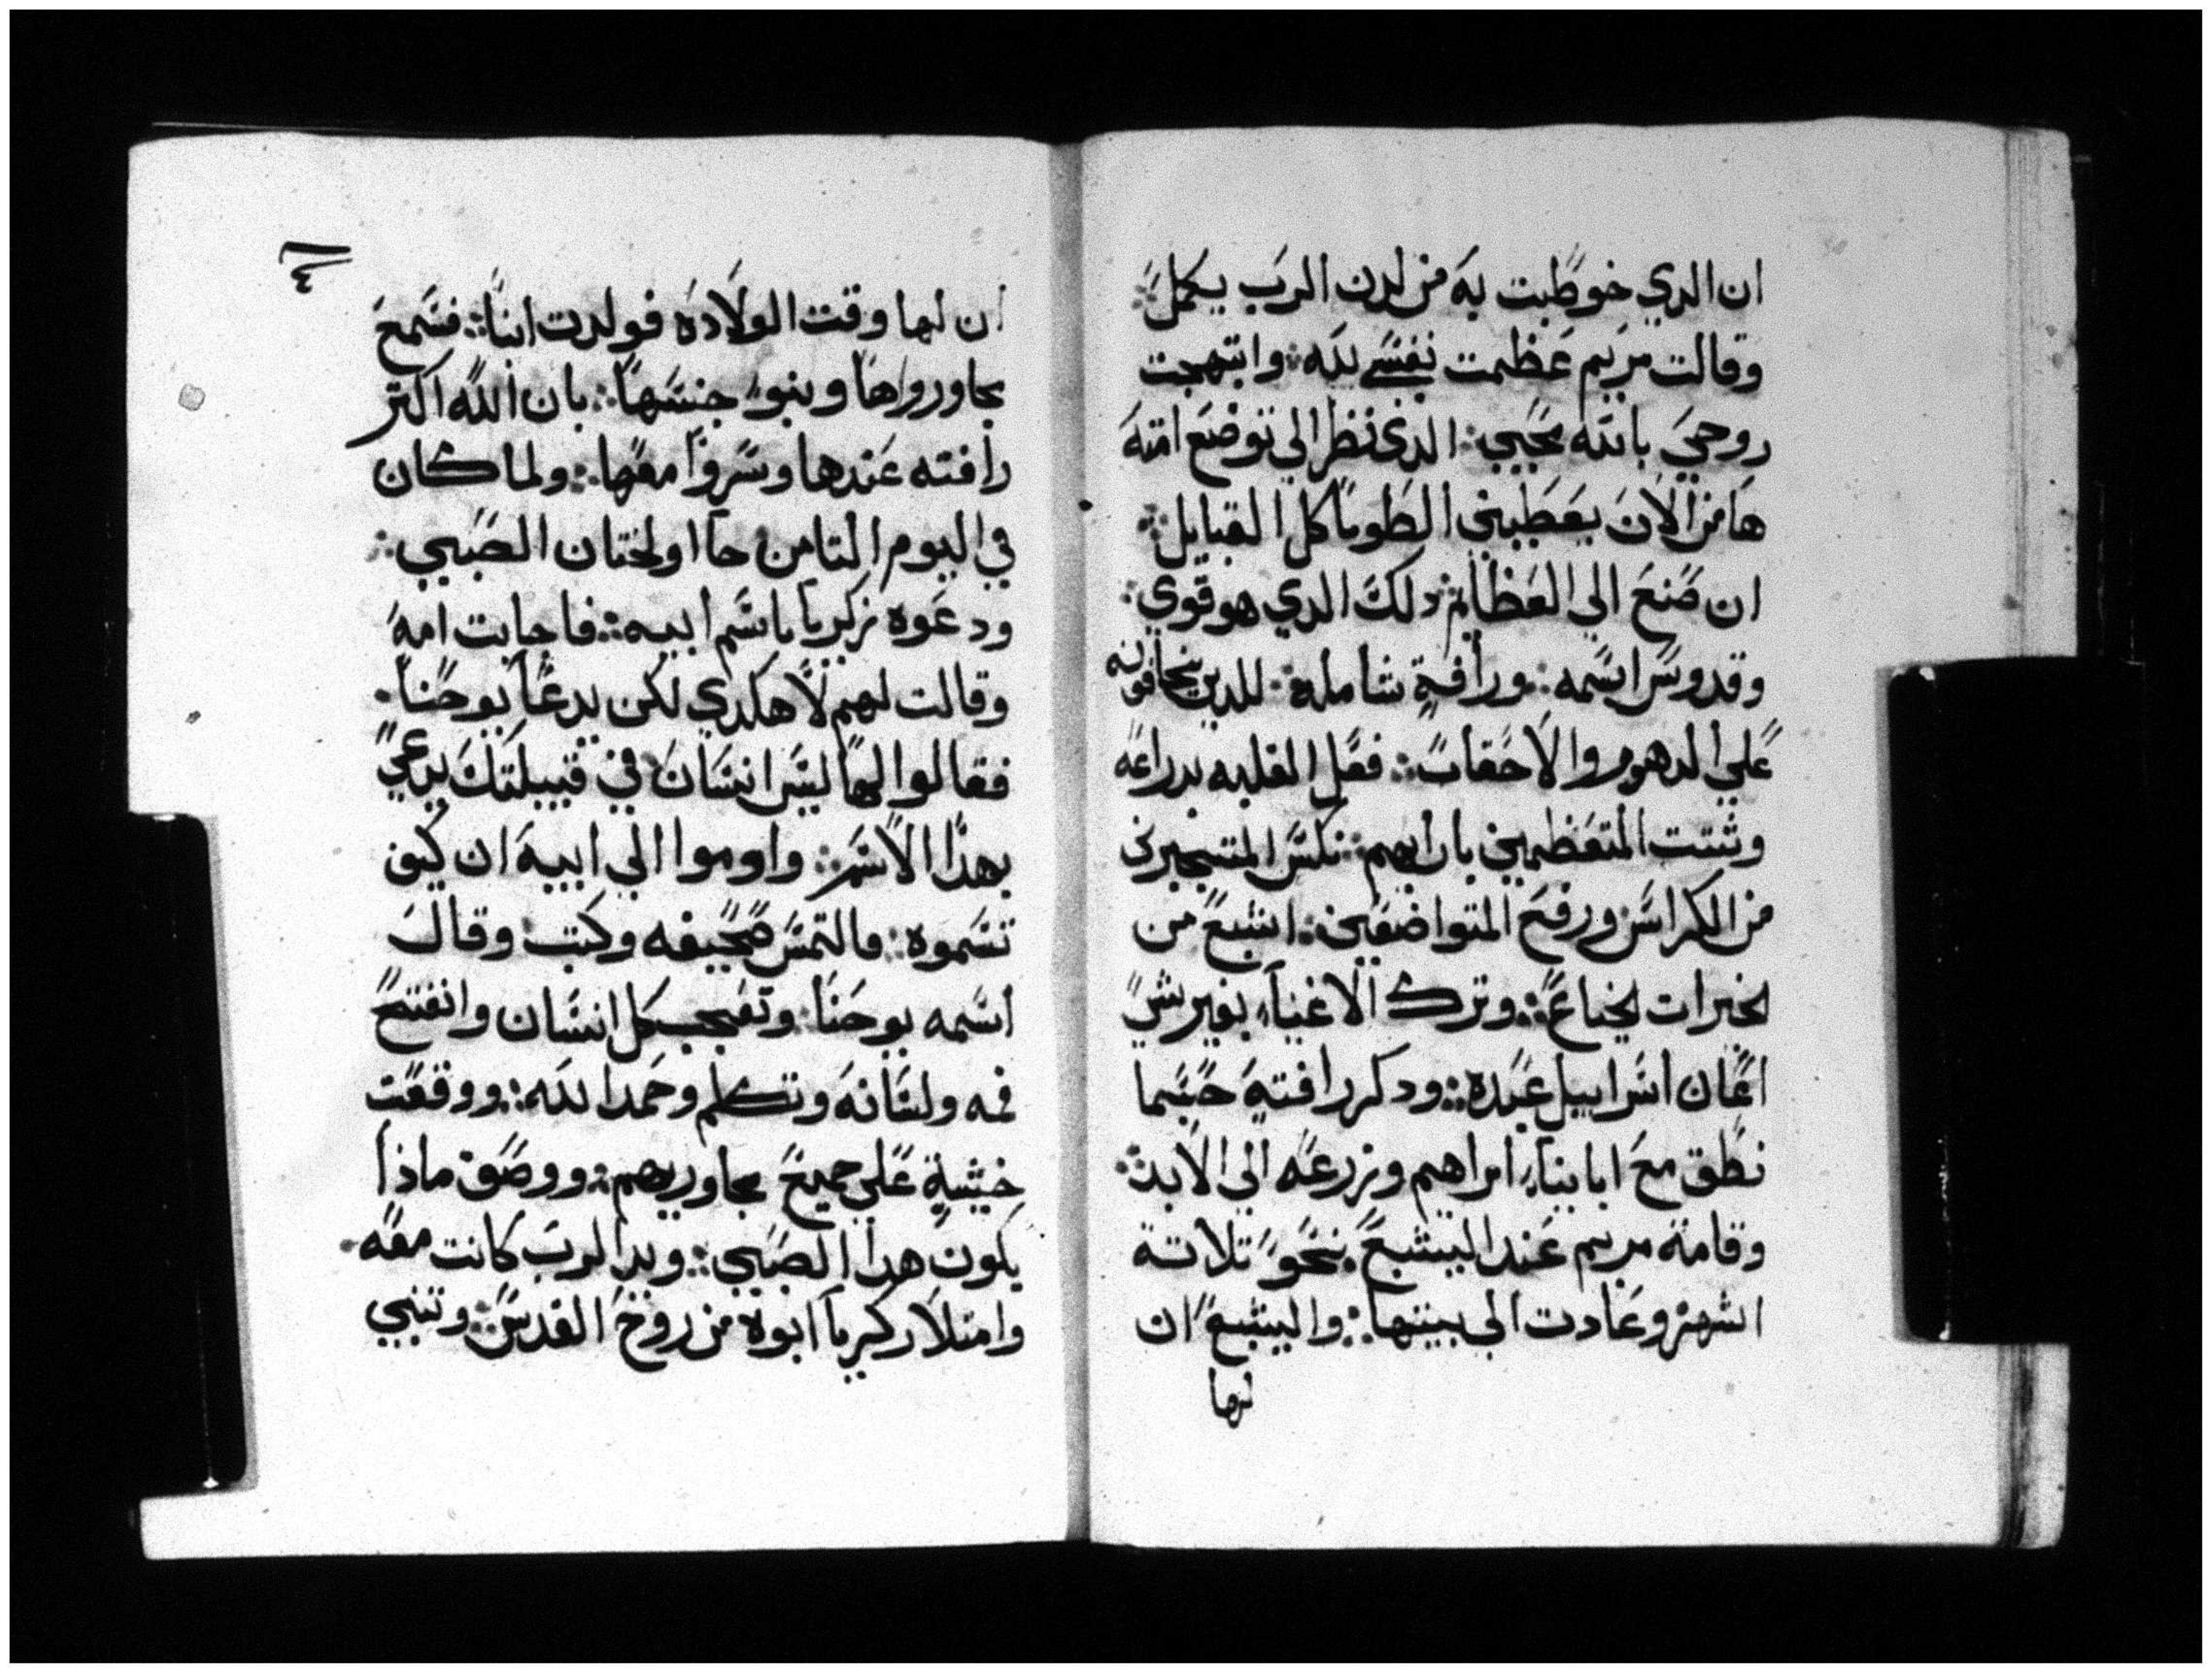 ان الدي خوطبت به من لدن الرب يكمل
وقالت مريم عظمت نفسي لله وابتهجت
روحي بالله محيي الدي نظر الي توضع امته
ها من الان يعطيني الطوبا كل القبايل
ان صنع الي العظايم دلك الدي هو قوي
وقدوس اسمه ورافة شامله للدين يخافونه
علي الدهور والاحقاب فعل الغلبه بدراعه
وشتت المتعظمين بارايهم نكس المتجبرين
من الكراسي ورفع المتواضعين اشبع من
الخيرات الجياع وترك الاغنيا بغير شي
اعان اسراييل عبده ودكر رافته حسبما
نطق مع ابايناء ابراهيم وزرعه الي الابد
وقامة مريم عند اليشبع نحو تلاتة
اشهر وعادت الي بيتها واليشبع ان
لها
٤
ان لها وقت الولاده فولدت ابنا فسمع
مجاورواها وبنو جنسها بان الله اكتر
رافته عندها وسروا معها ولما كان
في اليوم التامن جااو لختان الصبي
ودعوه زكريا باسم ابيه فاجابت امه
وقالت لهم لا هكدي لكن يدعا يوحنا
فقالوا لها ليس انسان في قبيلتك يدعي
بهدا الاسم واوموا الي ابيه ان كيف
تسموه فالتمس صحيفه وكتب وقال
اسمه يوحنا وتعجب كل انسان وانفتح
فمه ولسانه وتكلم وحمد الله ووقعت
خشية علي جميع مجاوريهم ووصف ماذا
يكون هدا الصبي ويد الرب كانت معه
وامتلا زكريا ابوه من روح القدس وتنبي